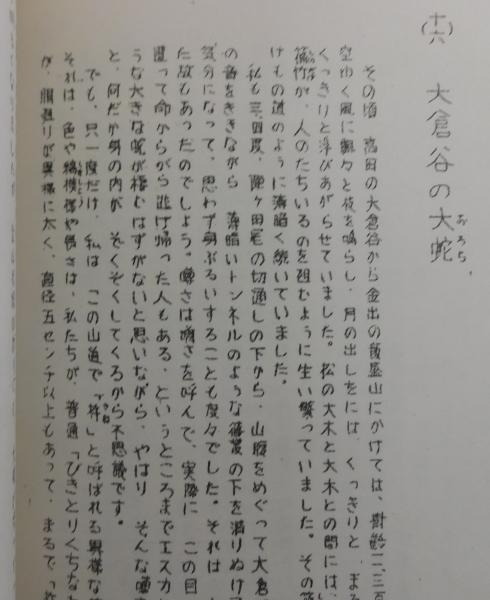 (十六)
大倉谷の大蛇
おろち
その頃、高田の大倉谷から金出の飯盛山にかけては、樹齢二、三百
空ゆく風に颯々と枝を鳴らし、月の出しをには、くっきりと、まる
くっきりと浮びあがらせていました。松の大木と大木との間には、
篠竹が、人のたちいるのを阻むように生い繁っていました。その
けもの道のように薄暗く続いていました。
私も三、四度、ヶ田尾の切通しの下から、山腹をめぐって大倉
の音をききながら、薄暗いトンネルのような篠藪の下を潜りぬけ
気分になって、思わず身ぶるいすることも度々でした。それは、
た故もあったのでしょう。噂さは噂さを呼んで、実際に、この目
遇って命からがら逃げ帰った人もある、というところまでエスカ
うな大きな蛇が棲むはずがないと思いながら、やはり、そんな噂
と、何だか身の内が、ぞくぞくしてくるから不思議です。
でも、只一度だけ、私は、この山道で「杵」と呼ばれる異様な
きね
それは、色や縞模様や長さは、私たちが、普通「ひきとりくちな
が、胴廻りが異様に太く、直径五センチ以上もあって、まるで「